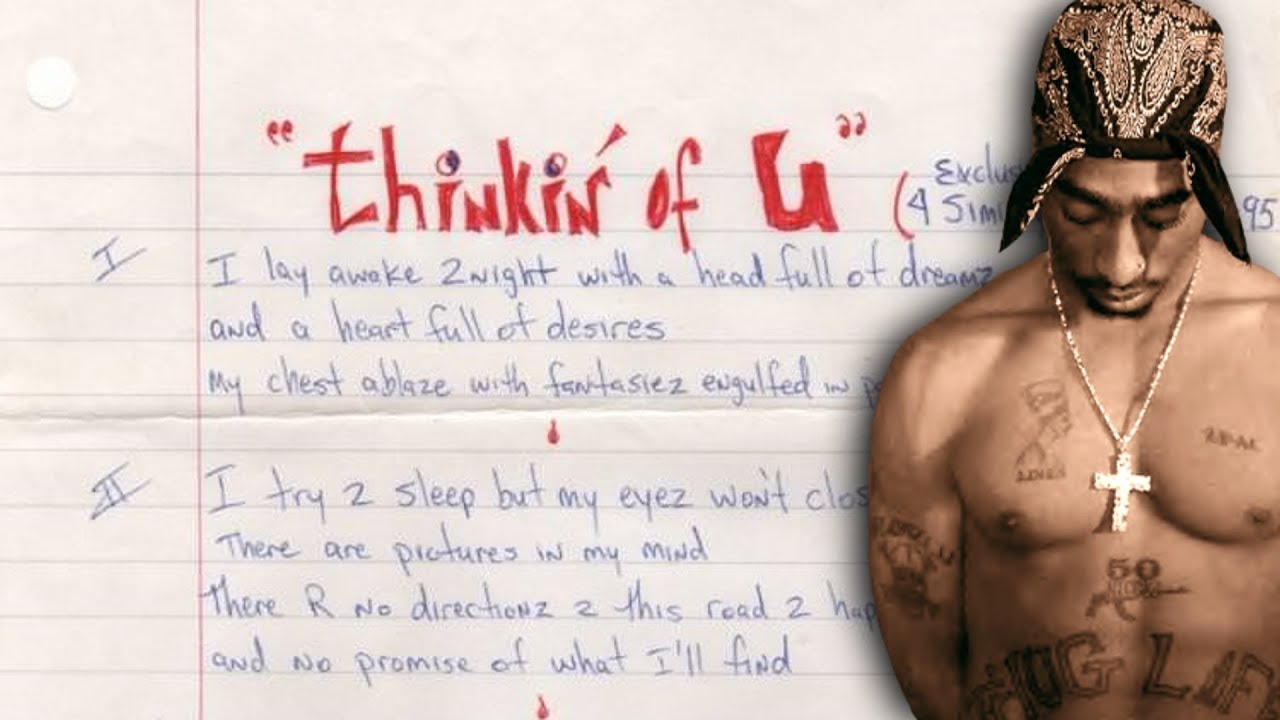 "thinkin' of U" (
Exclus
4 Simi 95
I
I lay awake 2night with a head full of dreamz
and a heart full of desires
My chest ablaze with fantasiez engulfed in
II
I try 2 sleep but my eyez won't clos
There are pictures in my mind
There R No directionz 2 this road 2 hap
and No promise of what I'll find
50
THUG LIFE